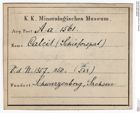 K. K. Mineralogisches Museum.
Acq. Post A.a. 1561.
Name: Calcit (Schieferspat)
Fundort Schwarzenberg, Sachsen